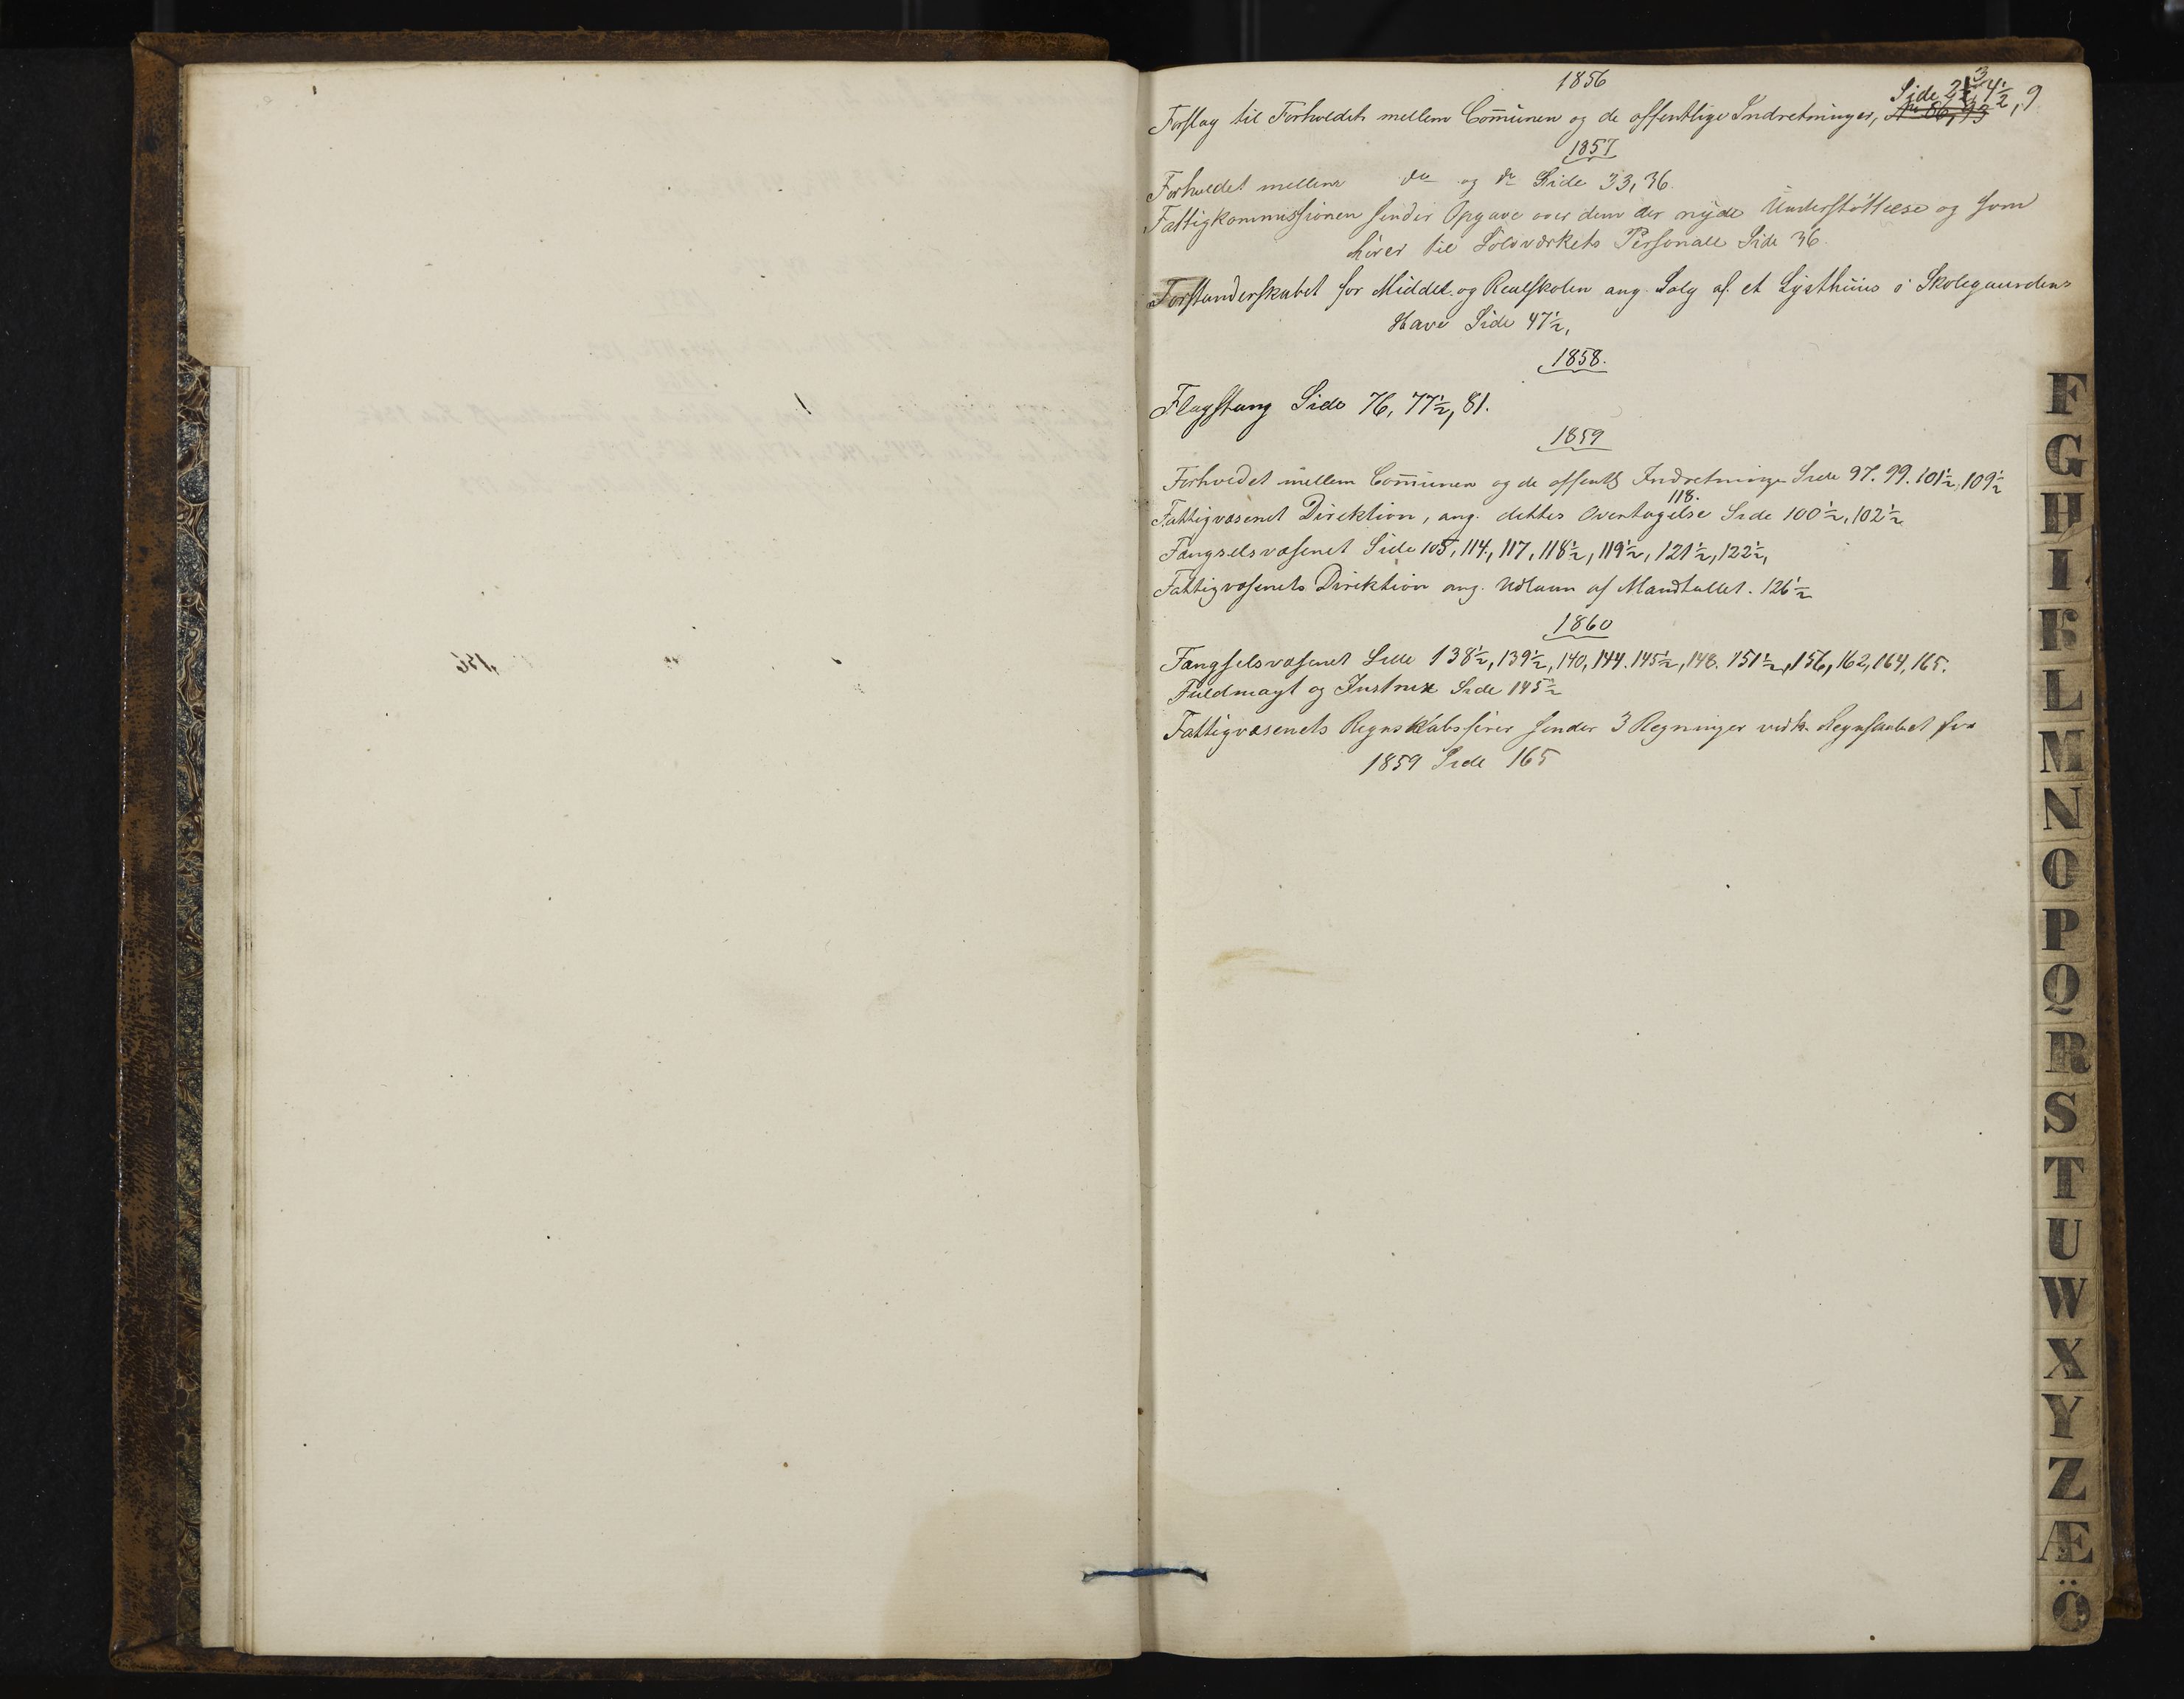 1856
Forslag til Forholdet mellem Com̅unen og de offentlige Indretninger, Side 2½, 3, 4½, 9
1857
Forholdet mellem do og do Side 33, 36.
Fattigkommissionen sender Opgave over dem der nyde Understøttelse og som
hører til Sølvværkets Personale Side 36.
Forstanderskabet for Middel- og Realskolen ang. Salg af et Lysthuus i Skolegaardens
Have Side 47½,
1858.
Flagstang Side 76, 77½, 81.
1859
Forholdet mellem Com̅unen og de offentl Indretninger Side 97. 99. 101½, 109½
118.
Fattigvæsenet Direktion, ang. dettes Overtagelse Side 100½, 102½
Fængselsvæsenet Side 105, 114, 117, 118½, 119½, 121½, 122½,
Fattigvæsenets Direktion ang. Udlaan af Mandtallet. 126½
1860
Fængselsvæsenet Side 138½, 139½, 140, 144. 145½, 148. 151½, 156, 162, 164, 165.
Fuldmagt og Instrux Side 145½
Fattigvæsenets Regnskabsfører sender 3 Regninger vedk. Regnskabet for
1859 Side 165
F
G
H
I
K
L
M
N
O
P
Q
R
S
T
U
W
X
Y
Z
Æ
Ö